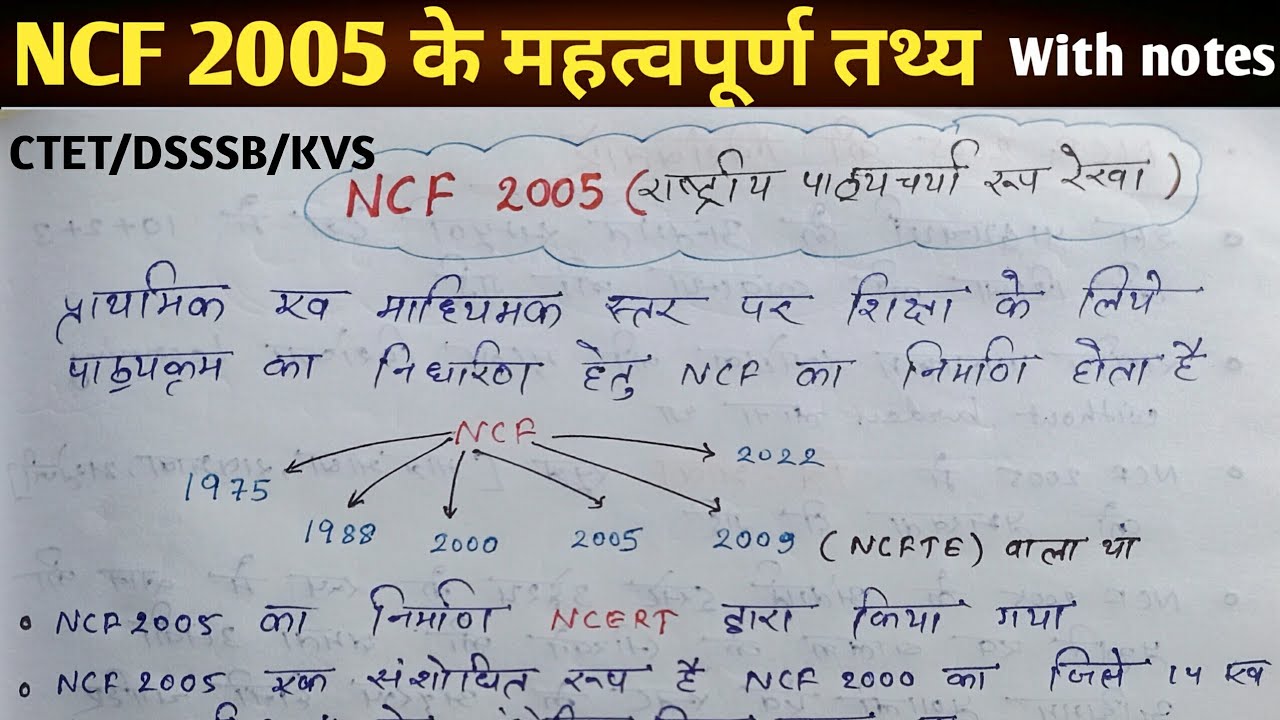 NCF 2005 के महत्वपूर्ण तथ्य With notes
CTET/DSSSB/KVS
NCF 2005 (राष्ट्रीय पाठ्यचर्या रूप रेखा)
प्राथमिक एव माध्यिमक स्तर पर शिक्षा के लिये
पाठ्यक्रम का निर्धारण हेतु NCF का निर्माण होता है
NCF
2022
1975
1988
2000
2005
2009 (NCFTE) वाला था
• NCF 2005 का निर्माण NCERT द्वारा किया गया
• NCF 2005 एक संशोधित रूप है NCF 2000 का जिसे 14 एव